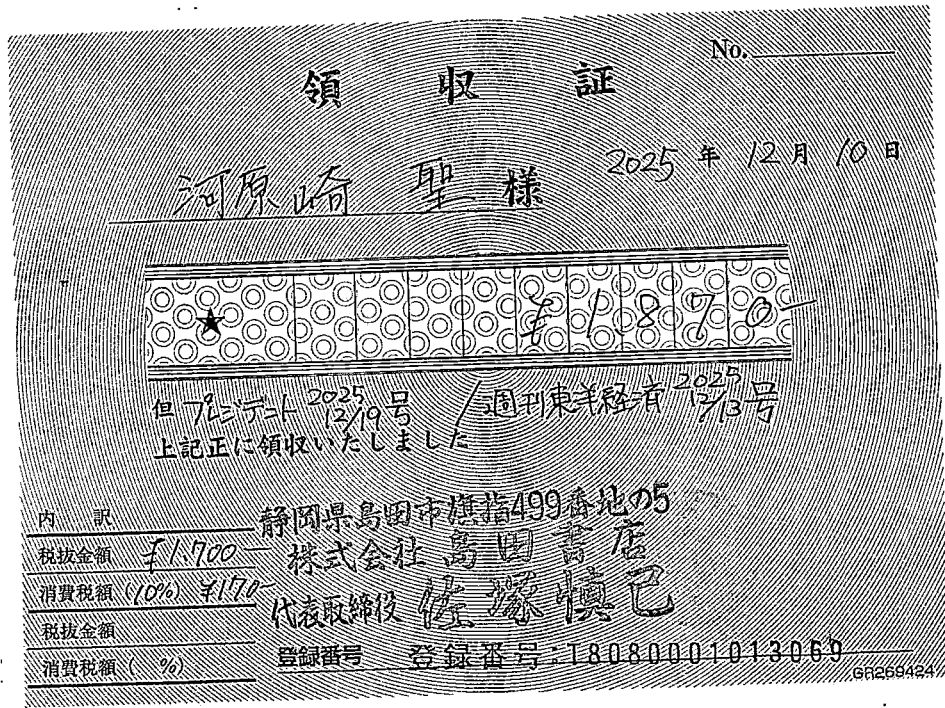 No.
領収証
2025年12月10日
河原崎 聖 様
★ ¥1,870-
但 プレジデント 2025 12/19号 / 週刊東洋経済 2025 12/13号
上記正に領収いたしました
内 訳
税抜金額 ¥1,700-
消費税額 (10%) ¥170-
税抜金額
消費税額 ( %)
静岡県島田市旗指499番地の5
株式会社 島田書店
代表取締役 佐塚慎己
登録番号 登録番号:T8080001013069
GR269424